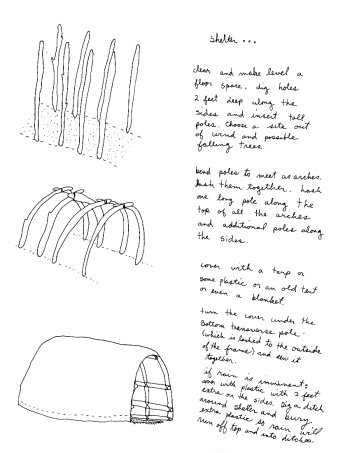 shelter ...
clear and make level a
floor space. dig holes
2 feet deep along the
sides and insert tall
poles. choose a site out
of wind and possible
falling trees.
bend poles to meet as arches.
lash them together. lash
one long pole along the
top of all the arches
and additional poles along
the sides.
cover with a tarp or
some plastic or an old tent
or even a blanket.
turn the cover under the
bottom transverse pole.
(which is lashed to the outside
of the frame) and sew it
together.
if rain is imminent,
cover with plastic with 2 feet
extra on the sides. dig a ditch
around shelter and bury
extra plastic so rain will
run off top and into ditches.